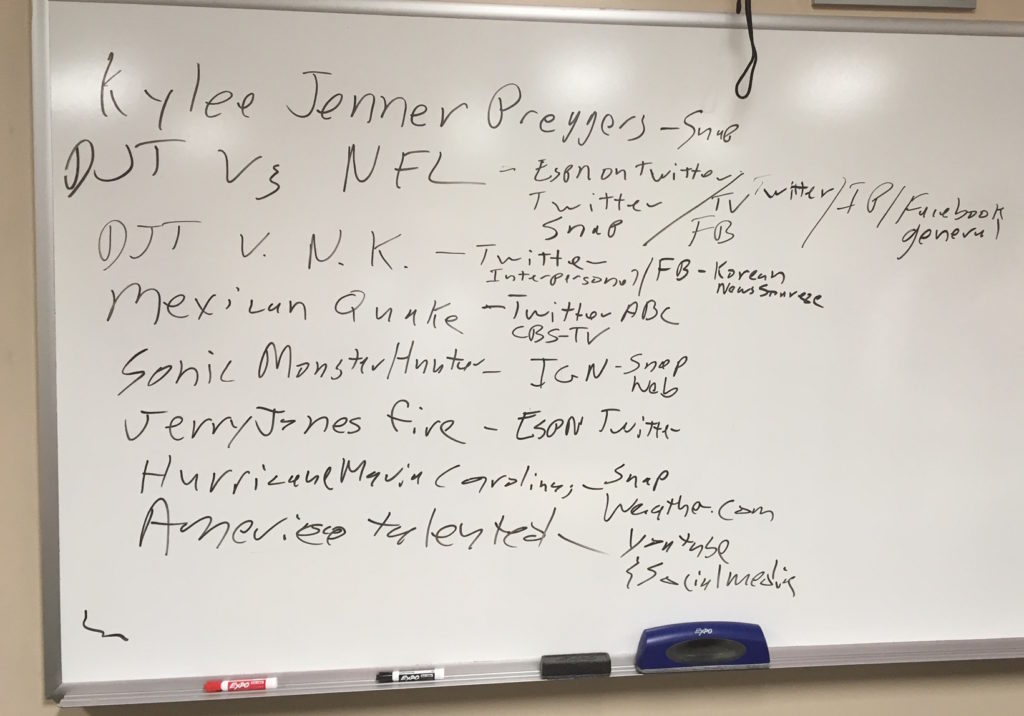 Kylee Jenner Preggers - Snap
DJT Vs NFL - ESPN on Twitter / TV Twitter / IP / Facebook
Twitter FB general
Snap
DJT V. N.K. - Twitter
Interpersonal / FB - Korean
News Source
Mexican Quake - Twitter ABC
CBS-TV
Sonic Monster Hunter - IGN - Snap
Web
Jerry Jones fire - ESPN Twitter
Hurricane Maria Carolinas - Snap
Weather.com
talented - Youtube
& Social media
EXPO
EXPO
EXPO